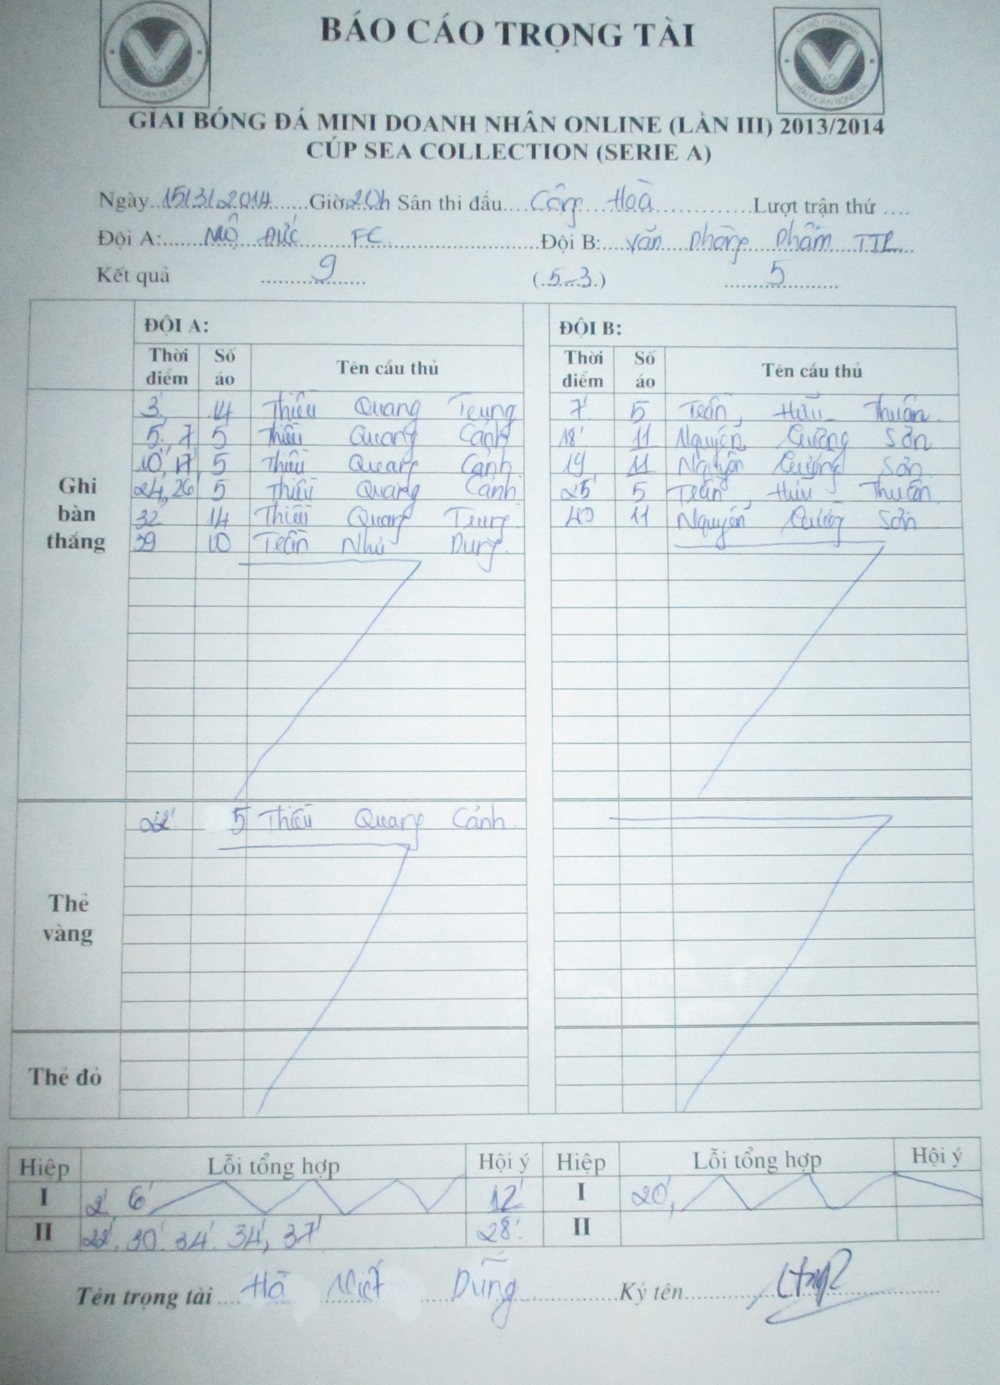 BÁO CÁO TRỌNG TÀI
GIẢI BÓNG ĐÁ MINI DOANH NHÂN ONLINE (LẦN III) 2013/2014
CÚP SEA COLLECTION (SERIE A)
Ngày..15/3/.2014......Giờ.20h Sân thi đấu....Cộng Hoà..............Lượt trận thứ ....
Đội A:......Mộ Đức FC......................Đội B: Văn Phòng Phẩm TTP....
Kết quả ........9........ (.5-3.) ........5........
ĐỘI A: ĐỘI B:
Thời điểm Số áo Tên cầu thủ Thời điểm Số áo Tên cầu thủ
Ghi bàn thắng
3' 14 Thiều Quang Trung 7' 5 Trần Hữu Thuần
5', 7' 5 Thiều Quang Cảnh 18' 11 Nguyễn Cường Sơn
10', 17' 5 Thiều Quang Cảnh 19' 11 Nguyễn Cường Sơn
24', 26' 5 Thiều Quang Cảnh 25' 5 Trần Hữu Thuần
32' 14 Thiều Quang Trung 40 11 Nguyễn Cường Sơn
39 10 Trần Nhà Dung
Thẻ vàng
22' 5 Thiều Quang Cảnh
Thẻ đỏ
Hiệp Lỗi tổng hợp Hội ý Hiệp Lỗi tổng hợp Hội ý
I 2', 6' 12' I 20',
II 22', 30' 34' 34', 37' 28' II
Tên trọng tài ....Hà Dũng..................Ký tên............